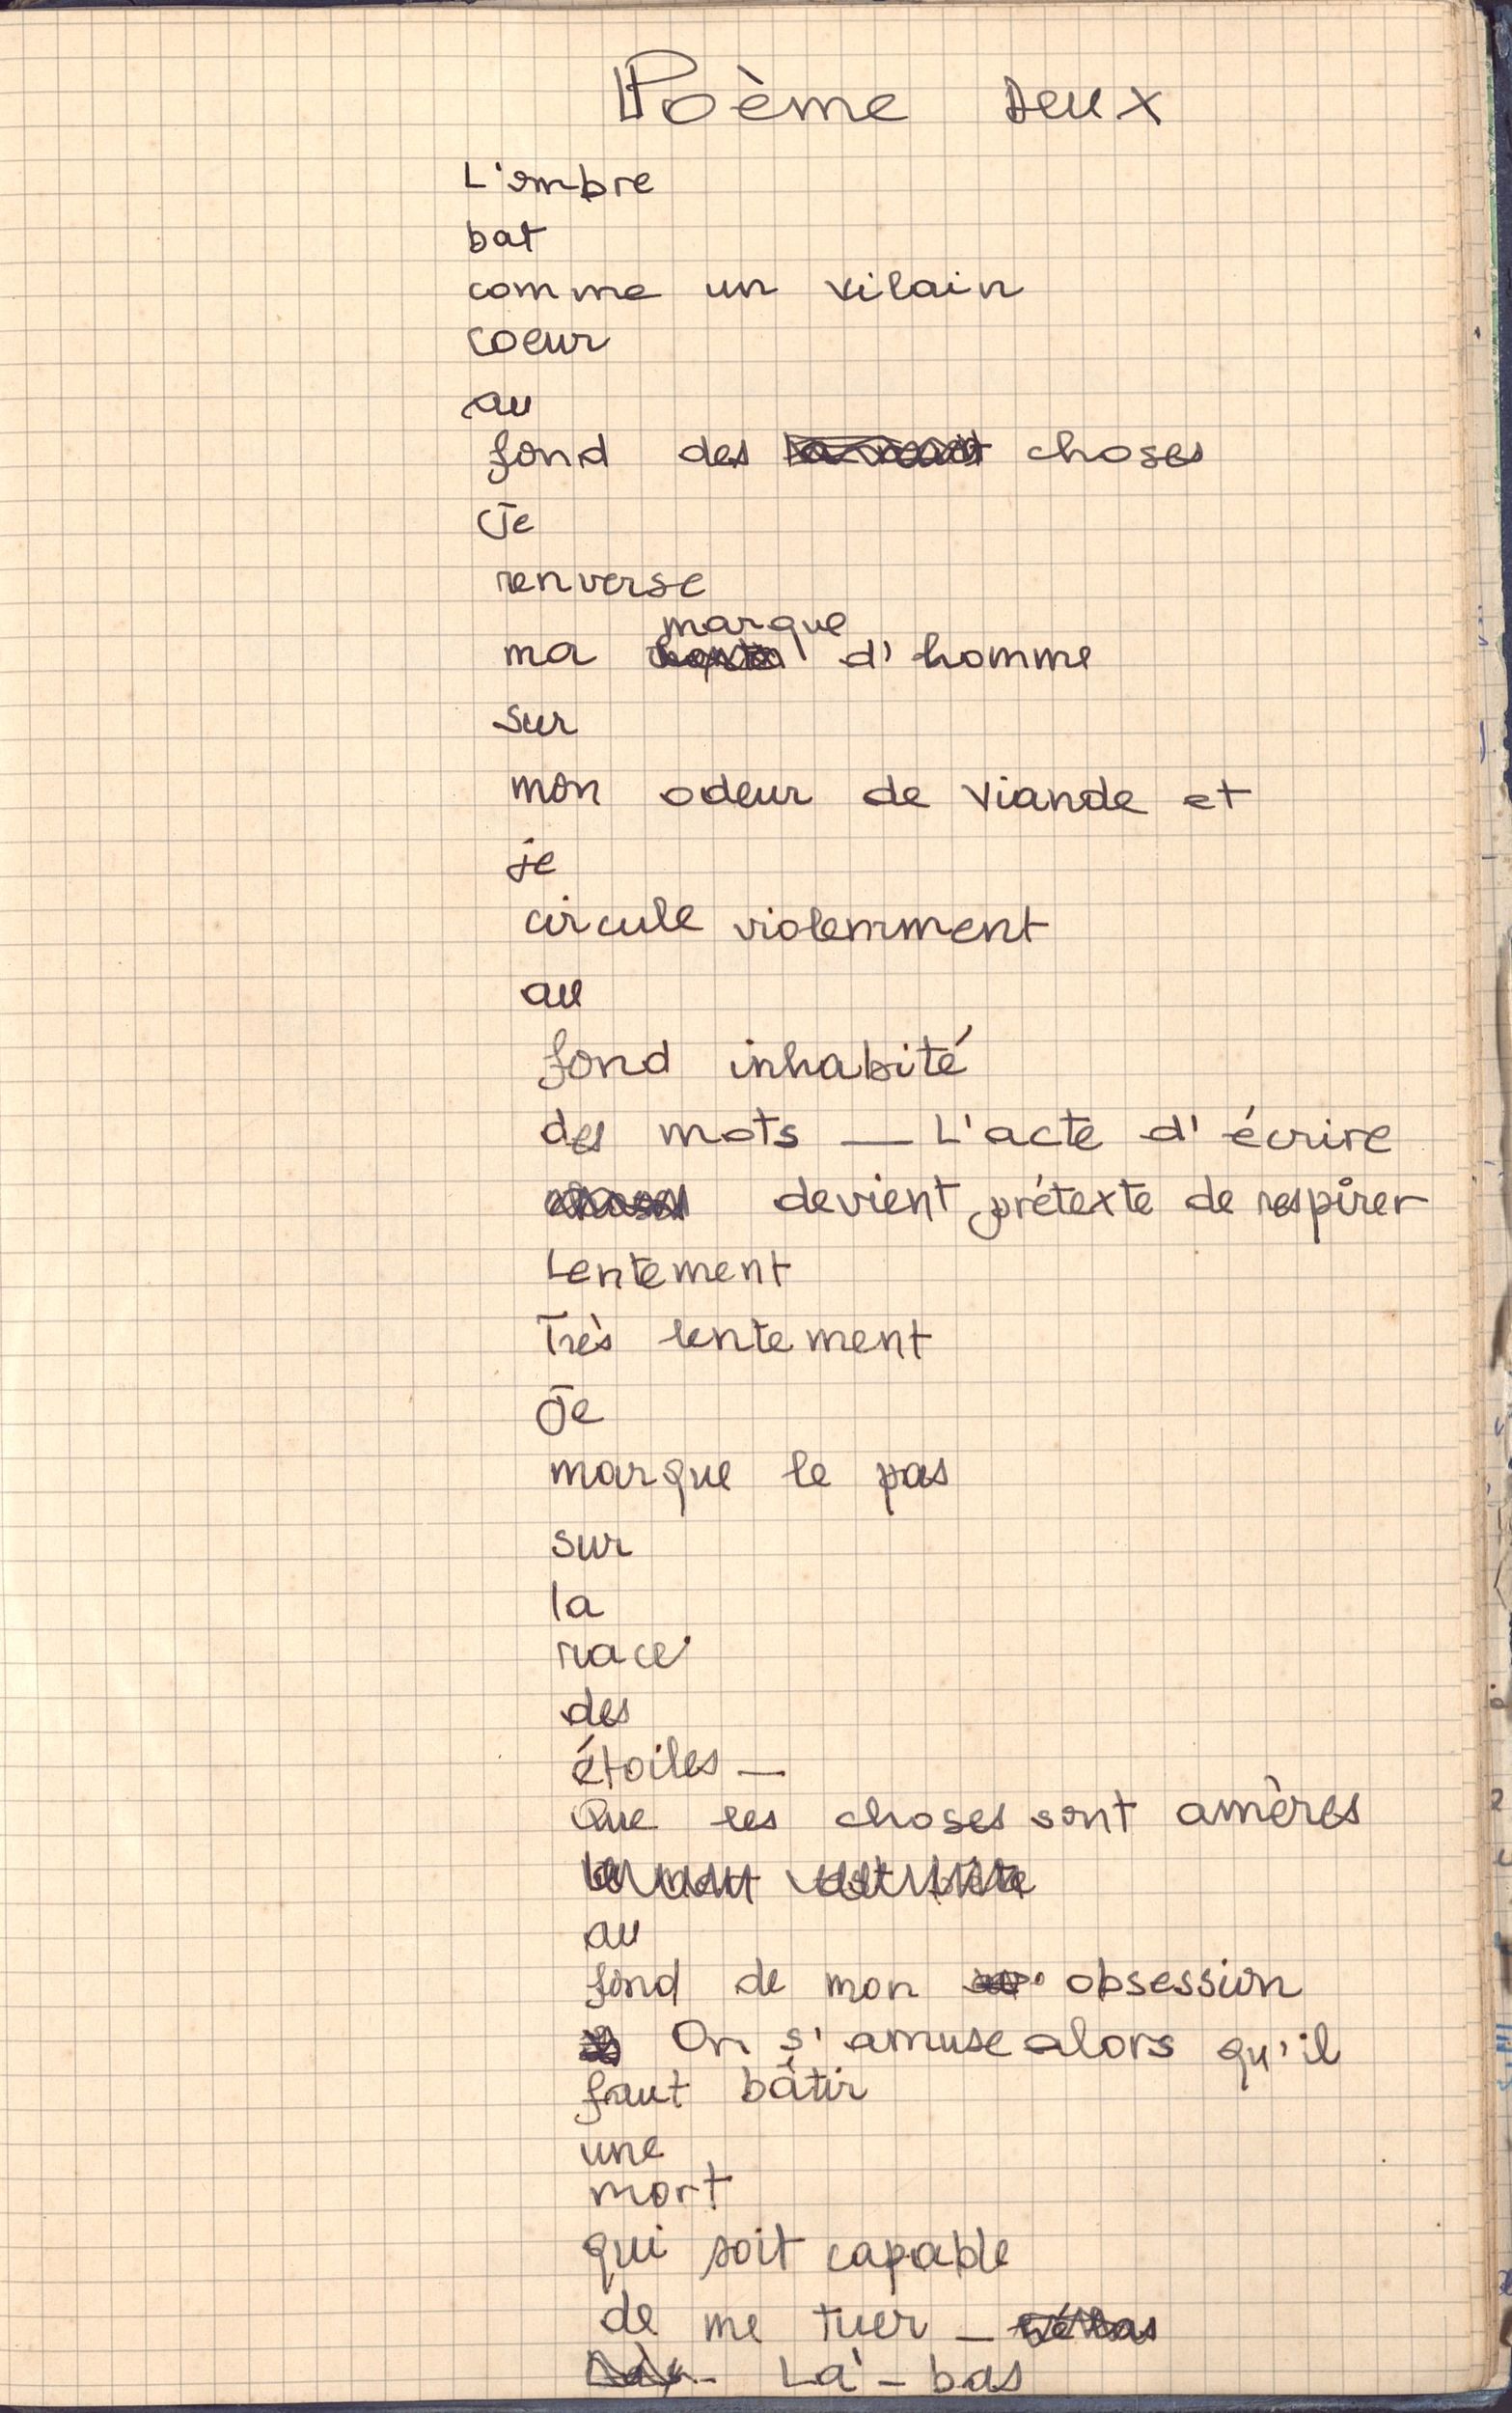 Poème Deux
L'ombre
bat
comme un vilain
coeur
au
fond des choses
Je
renverse
marque
ma d'homme
sur
mon odeur de viande et
je
circule violemment
au
fond inhabité
des mots — L'acte d'écrire
devient prétexte de respirer
Lentement
Très lentement
Je
marque le pas
sur
la
race
des
étoiles —
Que les choses sont amères
au
fond de mon obsession
On s'amuse alors qu'il
faut bâtir
une
mort
qui soit capable
de me tuer —
Là-bas